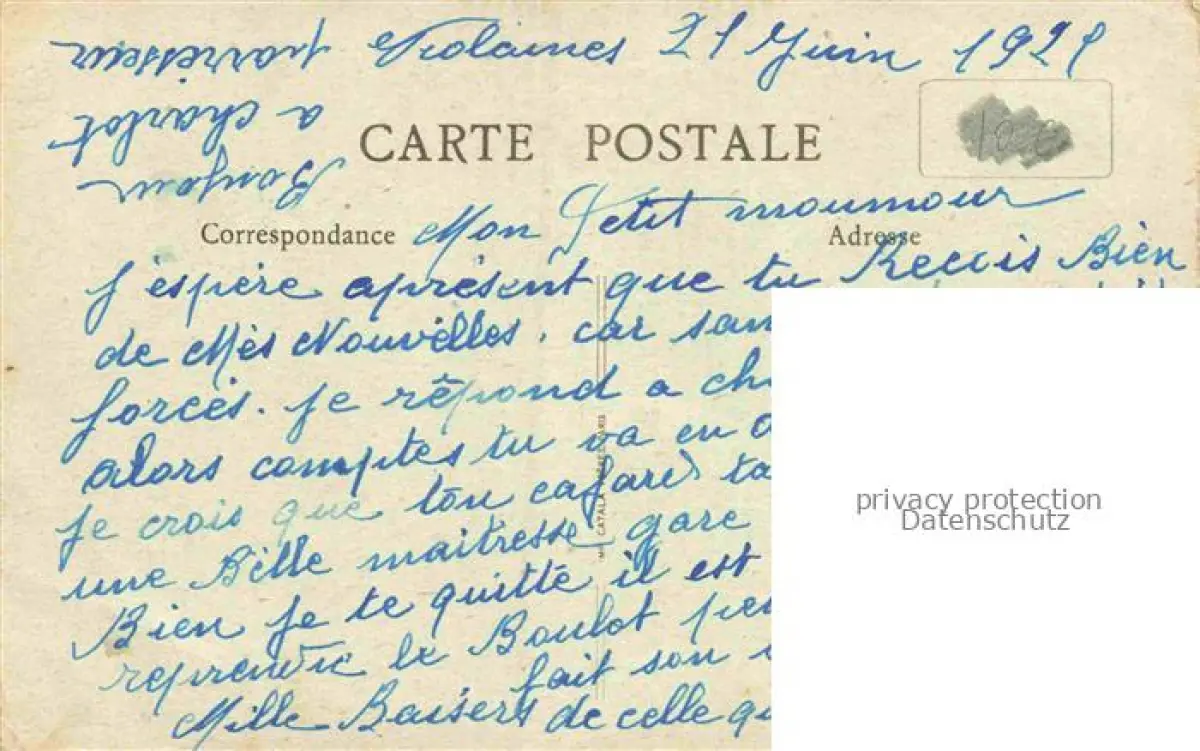 Violaines 21 Juin 1921
Bonjour
a charlot
parresseux
CARTE POSTALE
Correspondance
Adresse
Mon Petit moumour
J'espère aprèsent que tu Recois Bien
de Mès Nouvèlles. car san
forcès. Je rêpond a ch
alors comptes tu va en
Je crois que ton cafard ta
une Bèlle maitresse gare
Bien Je te quitte il est
reprendre le Boulot
fait son
Mille Baisers de celle qu
privacy protection
Datenschutz